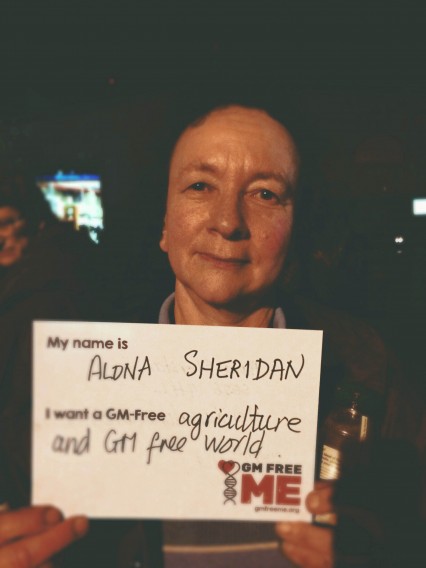 My name is
ALONA SHERIDAN
I want a GM-Free agriculture
and GM free world.
GM FREE
ME
gmfreeme.org